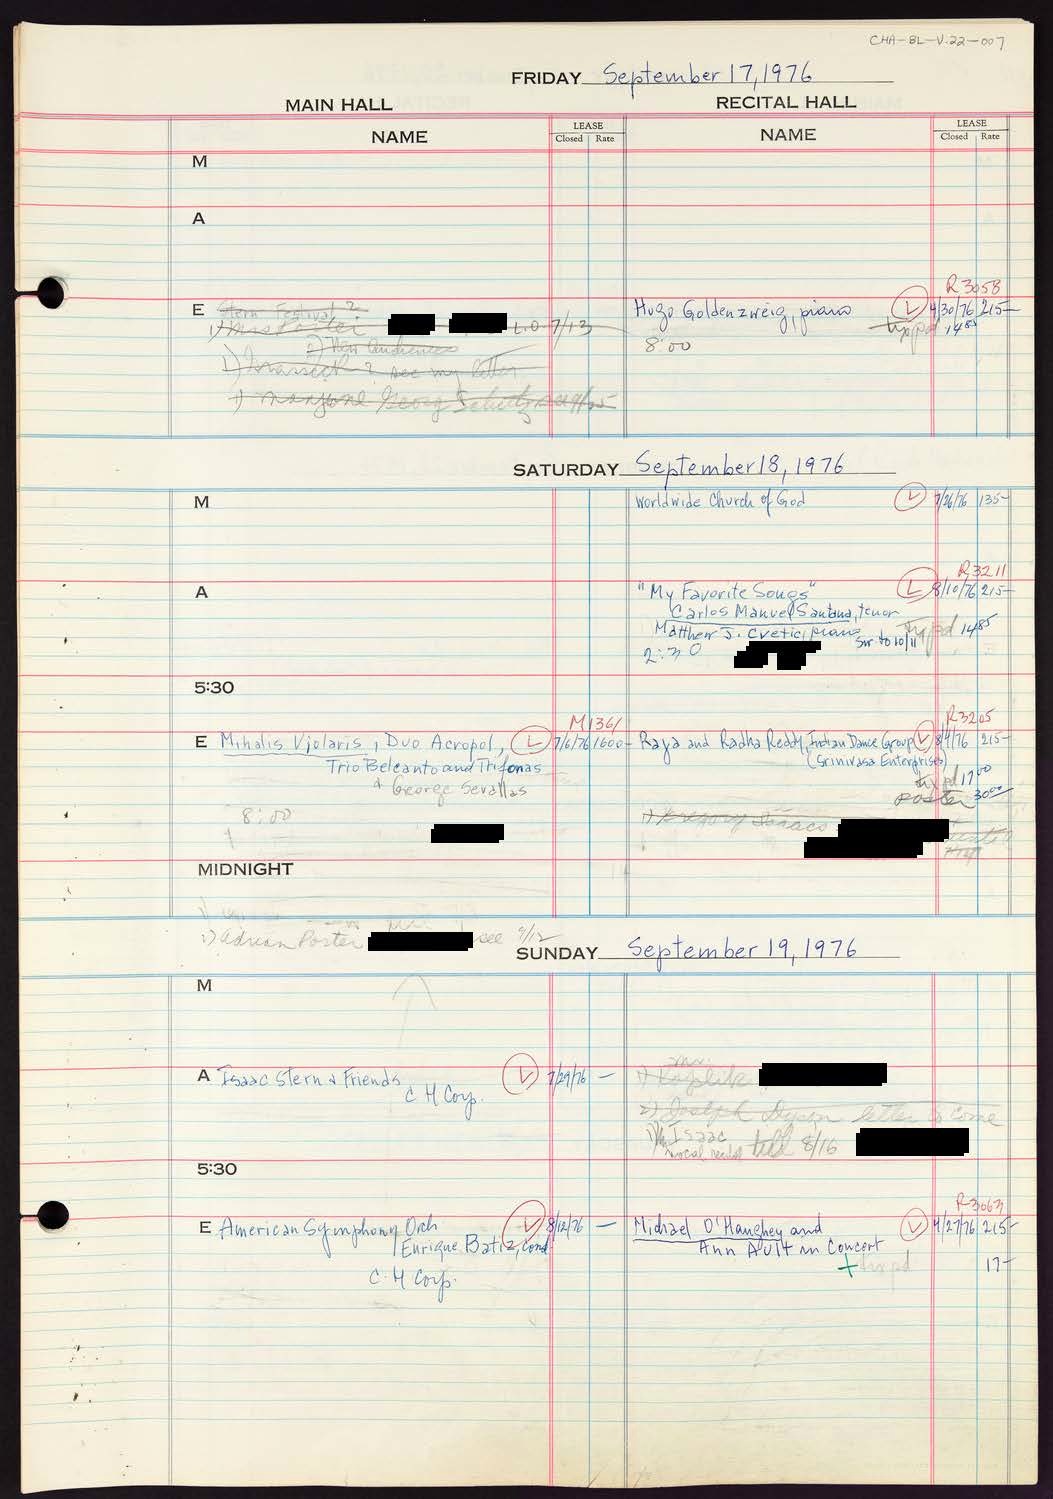 CHA-BL-V.22-007
FRIDAY September 17, 1976
MAIN HALL
RECITAL HALL
NAME
LEASE
Closed Rate
NAME
LEASE
Closed Rate
M
A
R3058
E Stern Festival ?
1) Mrs Porter L.O. 7/13
2) New Audiences
1) see my letter
1) Georg
Hugo Goldenzweig, piano L 4/30/76 215-
typd 14 85
8:00
SATURDAY September 18, 1976
M
Worldwide Church of God L 7/26/76 135-
R3211
A
"My Favorite Songs" L 8/10/76 215-
Carlos Manuel Santana, tenor
Matthew J. Cvetic, piano typd 14 85
2:30 SW to 10/11
5:30
M1361
E Mihalis Violaris, Duo Acropol, L 7/6/76 1600-
Trio Belcanto and Trifonas
& George Sevallas
8:00
R3205
Raja and Radha Reddy, Indian Dance Group L 8/4/76 215-
(Srinivasa Enterprises)
typd 17 00
poster 30 00
1) Gregory Isaacs
MIDNIGHT
1) Adrian Porter see 9/12
SUNDAY September 19, 1976
M
A Isaac Stern & Friends L 7/29/76 -
C H Corp.
2) Joseph letter to come
1) Mr Isaac
vocal recital told 8/16
5:30
E American Symphony Orch L 8/12/76 -
Enrique Batiz, cond
C. H Corp.
R3063
Michael O'Haughey and L 4/27/76 215-
Ann Ault in Concert
+ typd 17-